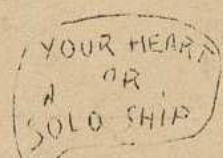 YOUR HEART
OR
A
SOLO SHIP